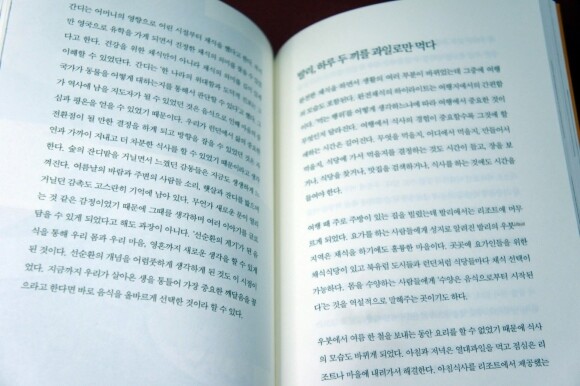 간디는 어머니의 영향으로 어린 시절부터 채식을 했다고 한다. 하지
만 영국으로 유학을 가게 되면서 진정한 채식의 의미를 알게 되었
다고 한다. 건강을 위한 채식만이 아니라 채식의 의미를
이해할 수 있었단다. 간디는 '한 나라의 위대함과 도덕성은
국가가 동물을 어떻게 대하는지를 통해서 판단할 수 있다'고 했다. 간디
가 역사에 남을 지도자가 될 수 있었던 것은 음식으로 인해 마음의
심과 평온을 얻을 수 있었기 때문이다. 우리가 런던에서 삶의
전환점이 될 만한 결정을 하게 되고 방향을 잡을 수 있었던 것은
연과 가까이 지내고 더 차분한 식사를 할 수 있었기 때문이라고 생각
한다. 숲의 잔디밭을 거닐면서 느꼈던 감동들은 지금도 생생하게 느
껴진다. 여름날의 바람과 주변의 사람들 소리, 햇살과 잔디를 밟으며
거닐던 감촉도 고스란히 기억에 남아 있다. 무언가 새로운 문이 열리
는 것 같은 감정이었기 때문에 그때를 생각하며 여러 이야기를 글로
담을 수 있게 되었다고 해도 과장이 아니다. '선순환의 계기'가 된 음
식을 통해 우리 몸과 우리 마음, 영혼까지 새로운 생각을 할 수 있게
된 것이다. 선순환의 개념을 어렴풋하게 생각하게 된 것도 이 시점이
었다. 지금까지 우리가 살아온 생을 통틀어 가장 중요한 깨달음을 꼽
으라고 한다면 바로 음식을 올바르게 선택한 것이라 할 수 있다.
발리, 하루 두 끼를 과일로만 먹다
온전한 채식을 하면서 생활의 여러 부분이 바뀌었는데 그중에 여행
의 모습도 포함된다. 원전채식의 하이라이트는 여행지에서의 간편함
이다. '먹는 행위'를 어떻게 생각하느냐에 따라 여행에서 중요한 것이
무엇인지 달라진다. 여행에서 식사의 경험이 중요할수록 그것에 할애
하는 시간은 길어진다. 무엇을 먹을지, 어디에서 먹을지, 만들어서
먹을지, 식당에 가서 먹을지를 결정하는 것도 시간이 들고, 장을 보
거나, 식당을 찾거나, 맛집을 검색하거나, 식사를 하는 것에도 시간을
들여야 한다.
여행 때 주로 주방이 있는 집을 빌렸는데 발리에서는 리조트에 머무
르게 되었다. 요가를 하는 사람들에게 성지로 알려진 발리의 우붓Ubud
지역은 채식을 하기에도 훌륭한 마을이다. 곳곳에 요가인들을 위한
채식식당이 있고 북유럽 도시들과 런던처럼 식당들마다 채식 선택이
가능하다. 몸을 수양하는 사람들에게 '수양은 음식으로부터 시작된
다'는 것을 여실히 말해주는 곳이기도 하다.
우붓에서 여름 한 철을 보내는 동안 요리를 할 수 없었기 때문에 식사
의 모습도 바뀌게 되었다. 아침과 저녁은 열대과일을 먹고 점심은 리
조트나 마을에 내려가서 해결한다. 아침식사를 리조트에서 제공했는